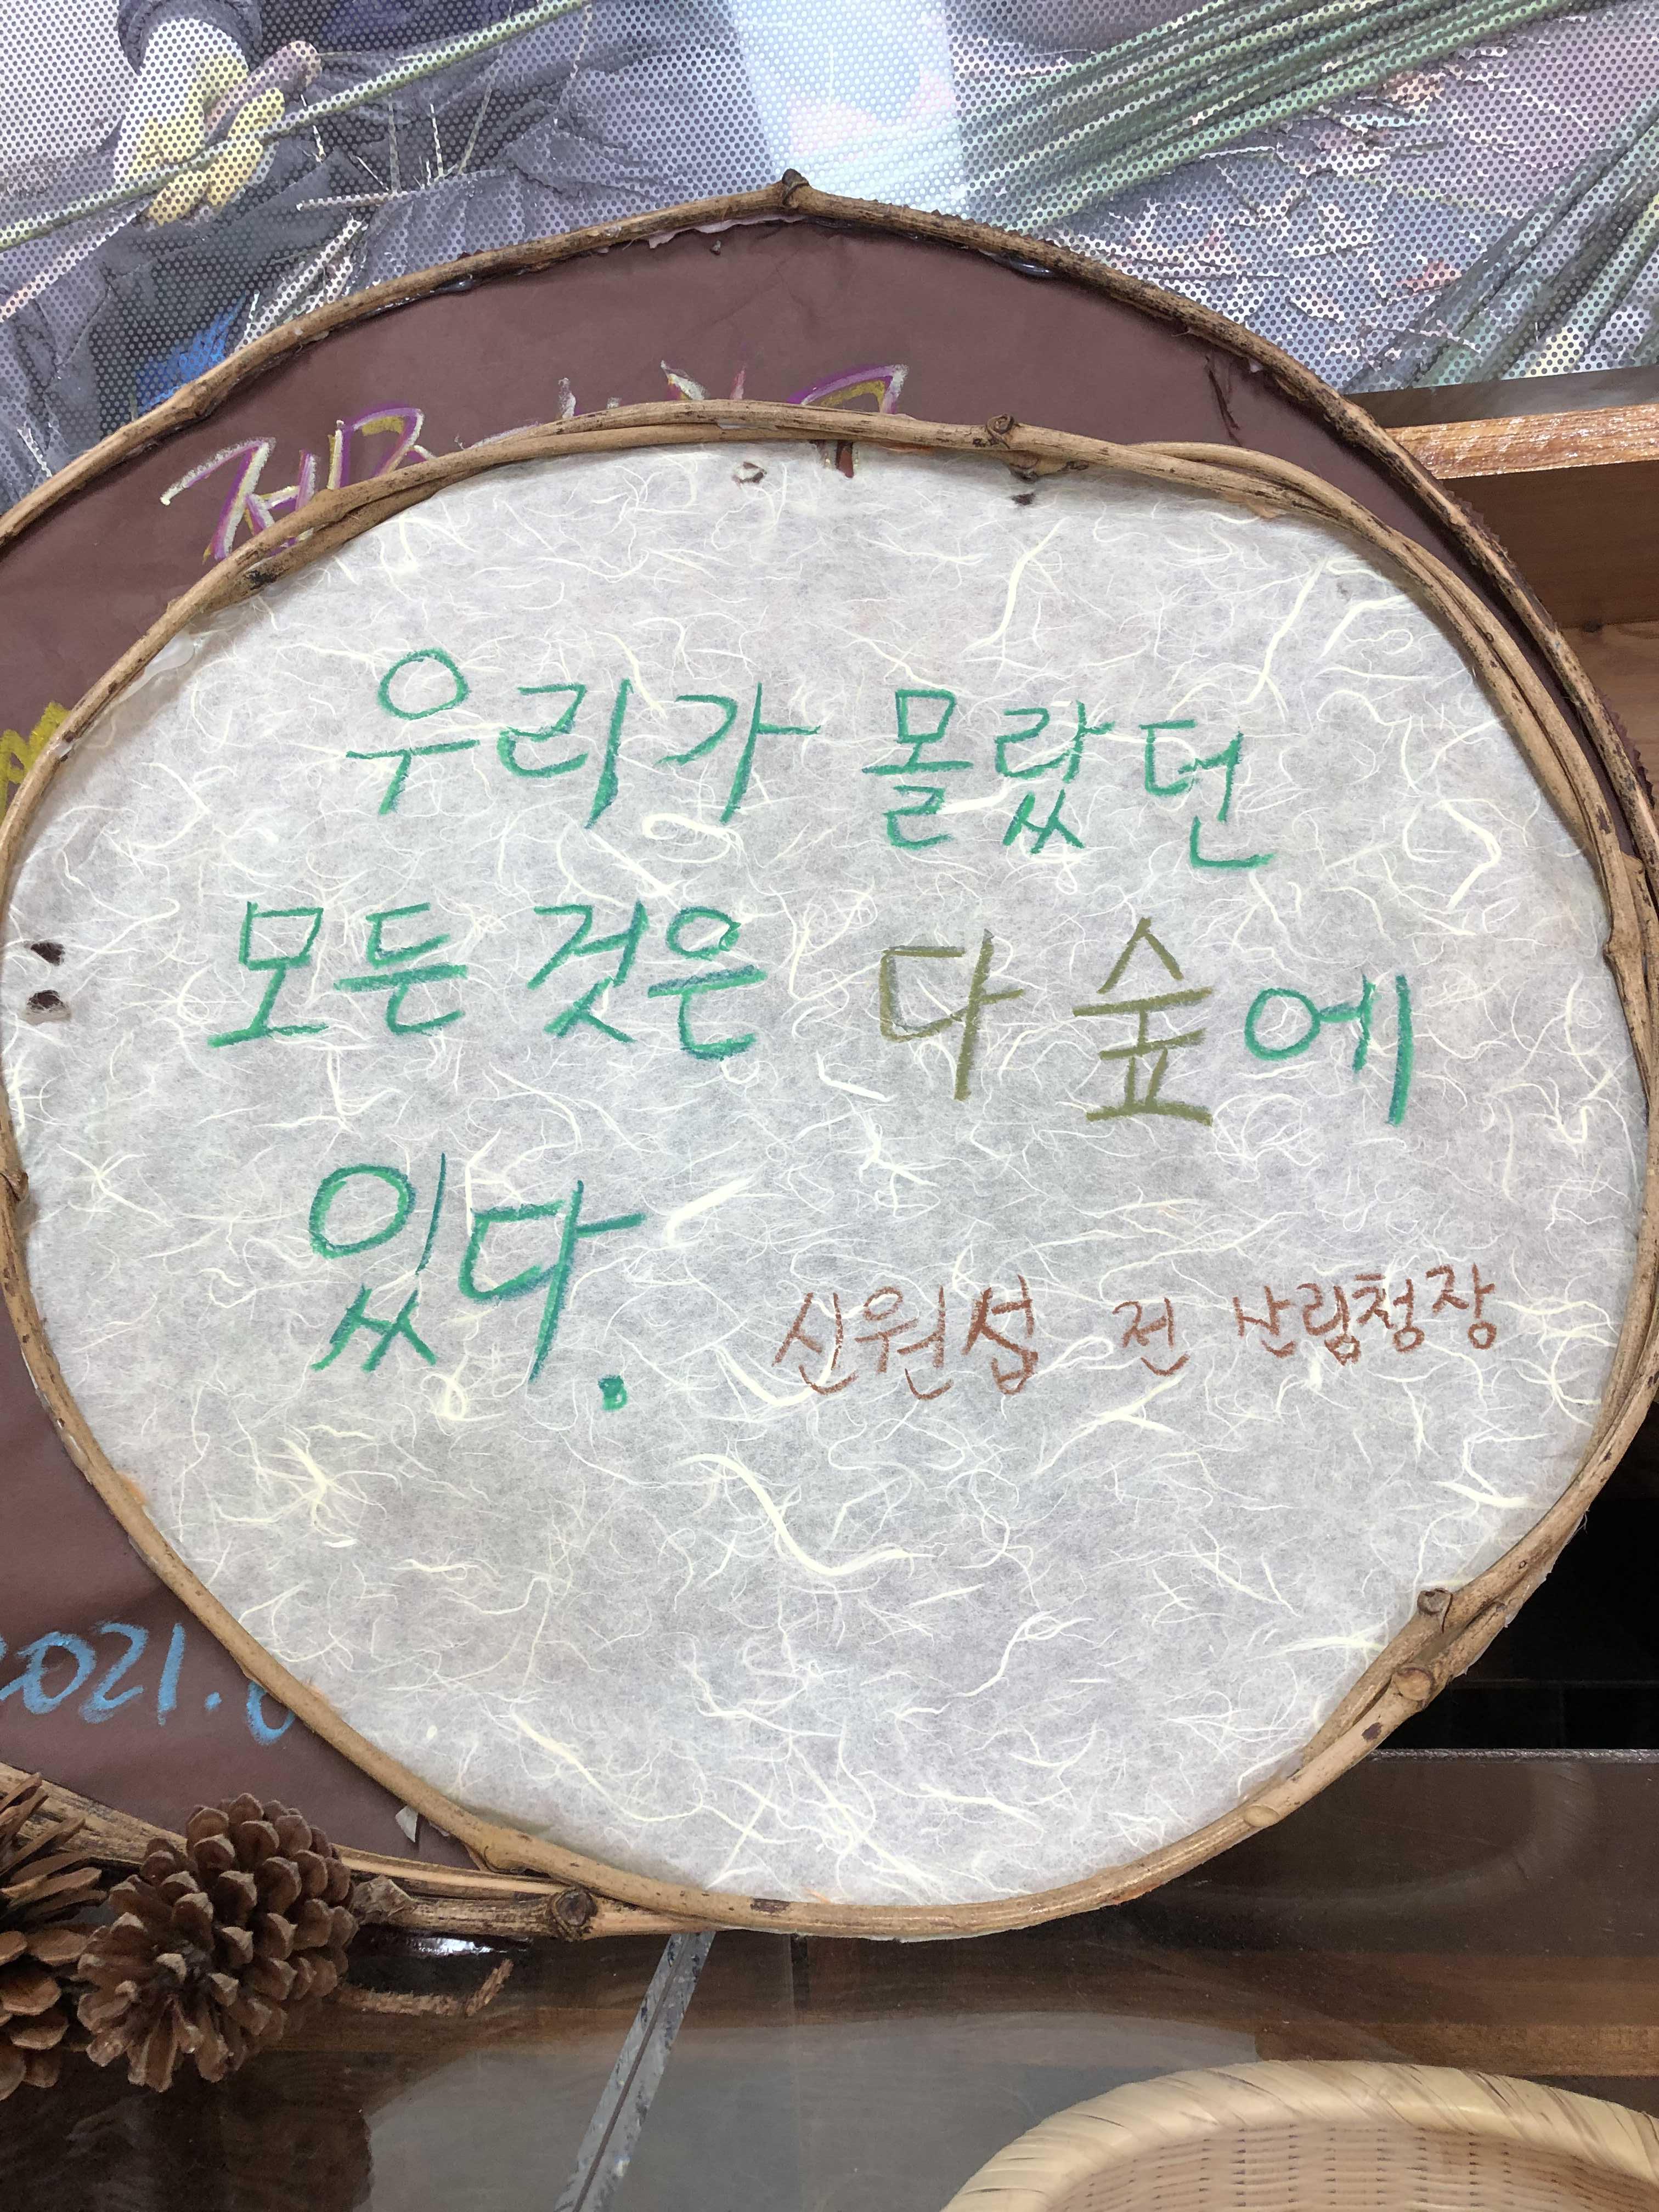 우리가 몰랐던
모든 것은 다 숲에
있다.
신원섭 전 산림청장
2021.